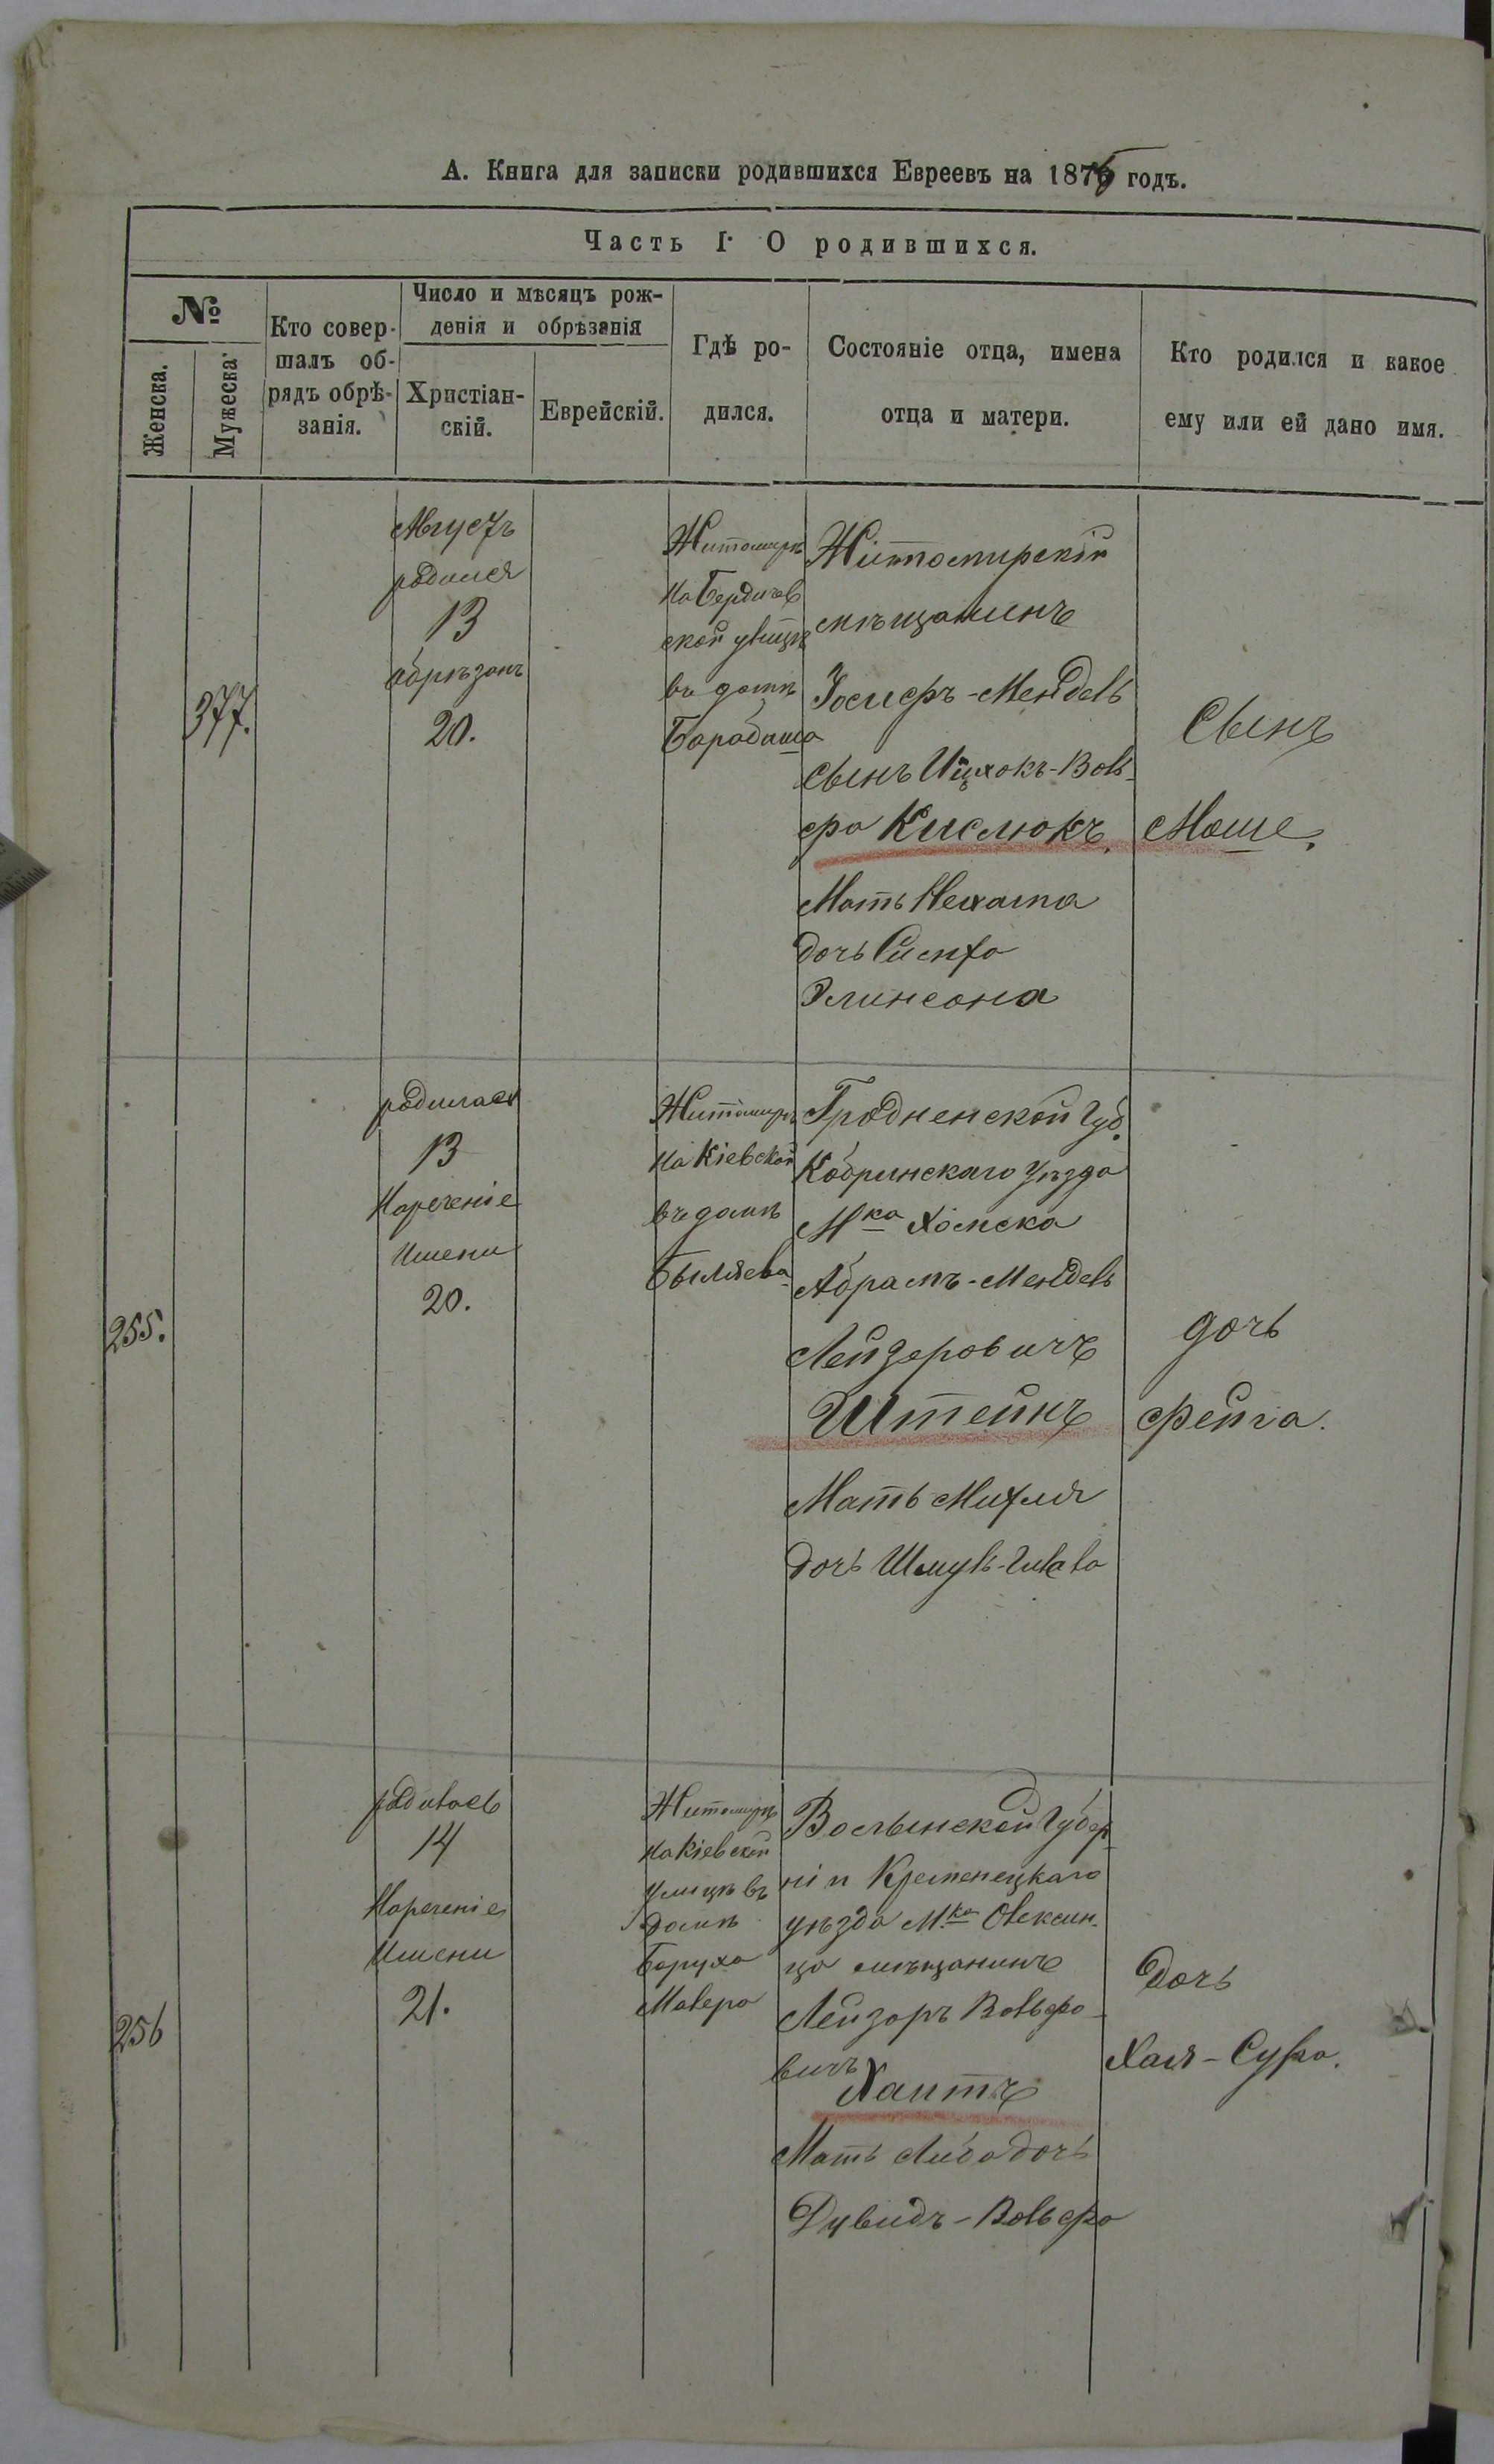 А. Книга для записки родившихся Евреевъ на 1875 годъ.
Часть I. О родившихся.
№
Женска.
Мужеска
Кто совер-
шалъ об-
рядъ обрѣ-
занія.
Число и мѣсяцъ рож-
денія и обрѣзанія
Христіан-
скій.
Еврейскій.
Гдѣ ро-
дился.
Состояніе отца, имена
отца и матери.
Кто родился и какое
ему или ей дано имя.
377.
Августъ
родился
13
обрѣзанъ
20.
Житомиръ
на Бердичев
ской улицѣ
въ домѣ
Житомирскій
мѣщанинъ
Іосифъ-Мендель
сынъ Ицхокъ-Воль
фа Кислюкъ.
Мать Нехама
дочь Симха
Элинсона
Сынъ
Моше.
255.
родилась
13
Нареченіе
Имени
20.
Житомиръ
на Кіевской
въ домѣ
Быляева
Гродненской Губ.
Кобринскаго уѣзда
М.ка Хомска
Абрамъ-Мендель
Лейзеровичъ
Штейнъ
Мать Михля
дочь Шмуль-
дочь
Фейга.
256
родилась
14
Нареченіе
Имени
21.
Житомиръ
на Кіевской
улицѣ въ
домѣ
Боруха
Малера
Волынской Губер
ніи Кременецкаго
уѣзда М.ка Олексин
ца мѣщанинъ
Лейзоръ Вольфо
вичъ
Хаитъ
Мать Либа дочь
Дувидъ-Вольфа
Дочь
Хая-Сура.